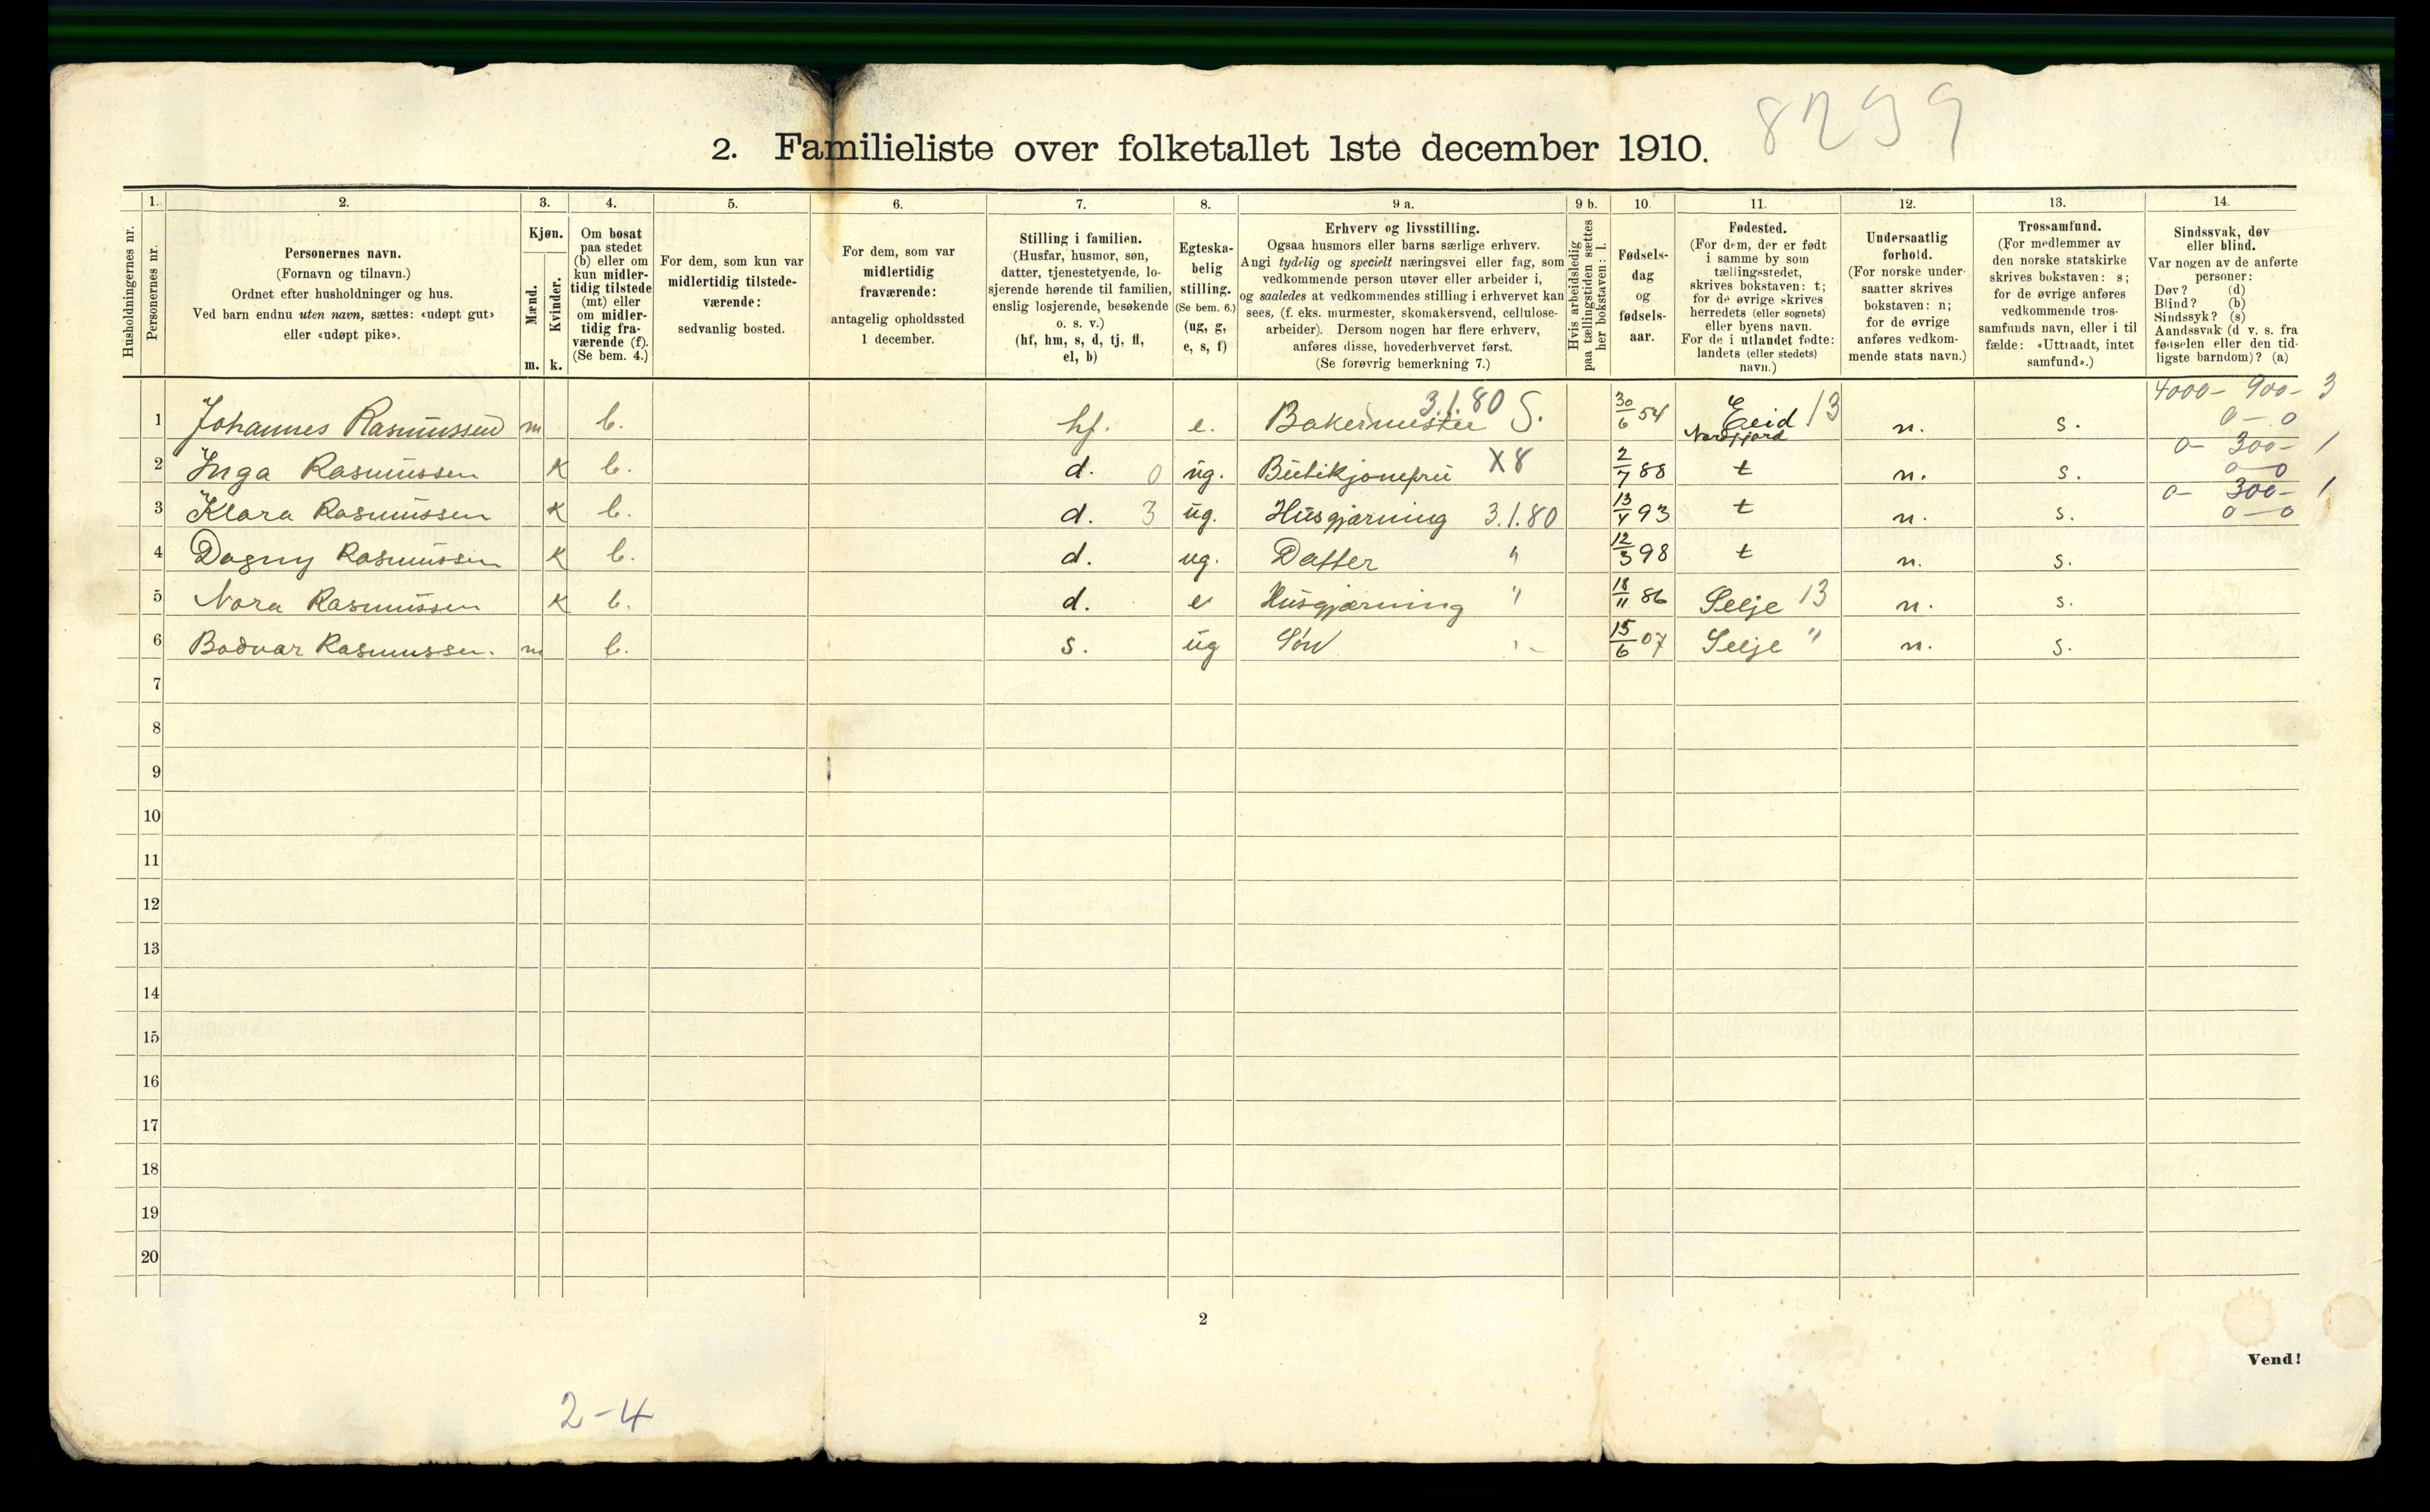 8299
2. Familieliste over folketallet 1ste december 1910.
Husholdningernes nr.
1.
Personernes nr.
2.
Personernes navn.
(Fornavn og tilnavn.)
Ordnet efter husholdninger og hus.
Ved barn endnu uten navn, sættes: «udøpt gut»
eller «udøpt pike».
3.
Kjøn.
Mænd.
m.
Kvinder.
k.
4.
Om bosat
paa stedet
(b) eller om
kun midler-
tidig tilstede
(mt) eller
om midler-
tidig fra-
værende (f).
(Se bem. 4.)
5.
For dem, som kun var
midlertidig tilstede-
værende:
sedvanlig bosted.
6.
For dem, som var
midlertidig
fraværende:
antagelig opholdssted
1 december.
7.
Stilling i familien.
(Husfar, husmor, søn,
datter, tjenestetyende, lo-
sjerende hørende til familien,
enslig losjerende, besøkende
o. s. v.)
(hf, hm, s, d, tj, fl,
el, b)
8.
Egteska-
belig
stilling.
(Se bem. 6.)
(ug, g,
e, s, f)
9 a.
Erhverv og livsstilling.
Ogsaa husmors eller barns særlige erhverv.
Angi tydelig og specielt næringsvei eller fag, som
vedkommende person utøver eller arbeider i,
og saaledes at vedkommendes stilling i erhvervet kan
sees, (f. eks. murmester, skomakersvend, cellulose-
arbeider). Dersom nogen har flere erhverv,
anføres disse, hovederhvervet først.
(Se forøvrig bemerkning 7.)
9 b.
Hvis arbeidsledig
paa tællingstiden sættes
her bokstaven: l.
10.
Fødsels-
dag
og
fødsels-
aar.
11.
Fødested.
(For dem, der er født
i samme by som
tællingsstedet,
skrives bokstaven: t;
for de øvrige skrives
herredets (eller sognets)
eller byens navn.
For de i utlandet fødte:
landets (eller stedets)
navn.)
12.
Undersaatlig
forhold.
(For norske under-
saatter skrives
bokstaven: n;
for de øvrige
anføres vedkom-
mende stats navn.)
13.
Trossamfund.
(For medlemmer av
den norske statskirke
skrives bokstaven: s;
for de øvrige anføres
vedkommende tros-
samfunds navn, eller i til
fælde: «Uttraadt, intet
samfund».)
14.
Sindssvak, døv
eller blind.
Var nogen av de anførte
personer:
Døv? (d)
Blind? (b)
Sindssyk? (s)
Aandssvak (d v. s. fra
fødselen eller den tid-
ligste barndom)? (a)
4000- 900- 3
3.1.80
1 Johannes Rasmussen m b. hf. e. Bakermester S. 30/6 54 Eeid 13 n. s. 0-0
Nordfjord
0- 300- 1
2 Inga Rasmussen K b. d. 0 ug. Butikjomfru X8 2/7 88 t n. s. 0-0
0- 300- 1
3 Klara Rasmussen K b. d. 3 ug. Husgjærning 3.1.80 13/4 93 t n. s. 0-0
4 Dagny Rasmussen K b. d. ug. Datter " 12/3 98 t n. s.
5 Nora Rasmussen K b. d. e Husgjærning " 18/11 86 Selje 13 n. s.
6 Bodvar Rasmussen. m b. s. ug Søn 15/6 07 Selje " n. s.
7
8
9
10
11
12
13
14
15
16
17
18
19
20
2
Vend!
2-4